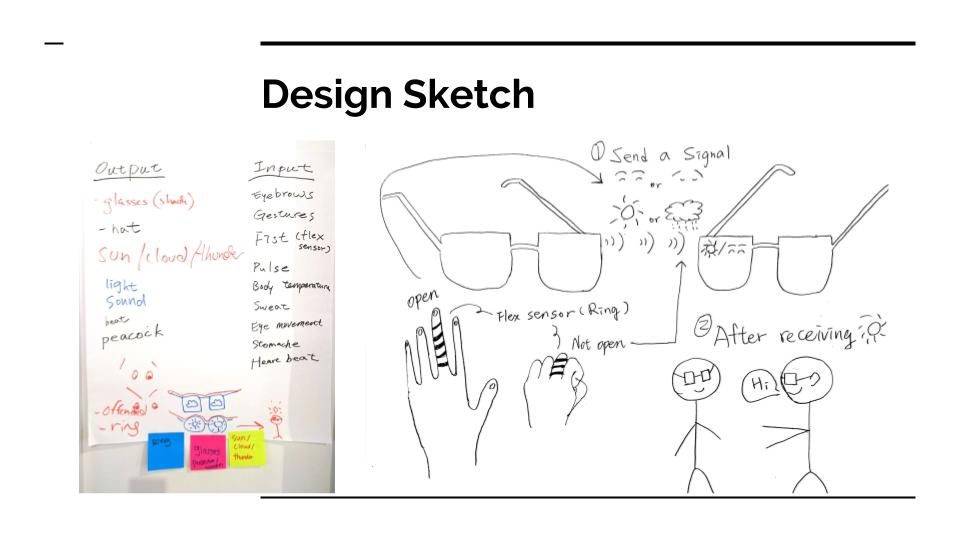 Design Sketch
Output
- glasses
- hat
Sun/cloud/thunder
light
Sound
peacock
- ring
Input
Eyebrows
Gestures
Fist (flex
sensor)
Pulse
Body temperature
Sweat
Eye movement
Stomache
Heart beat
glasses
sun/
cloud/
thunder
① Send a Signal
or
or
open
Flex sensor (Ring)
Not open
② After receiving
Hi